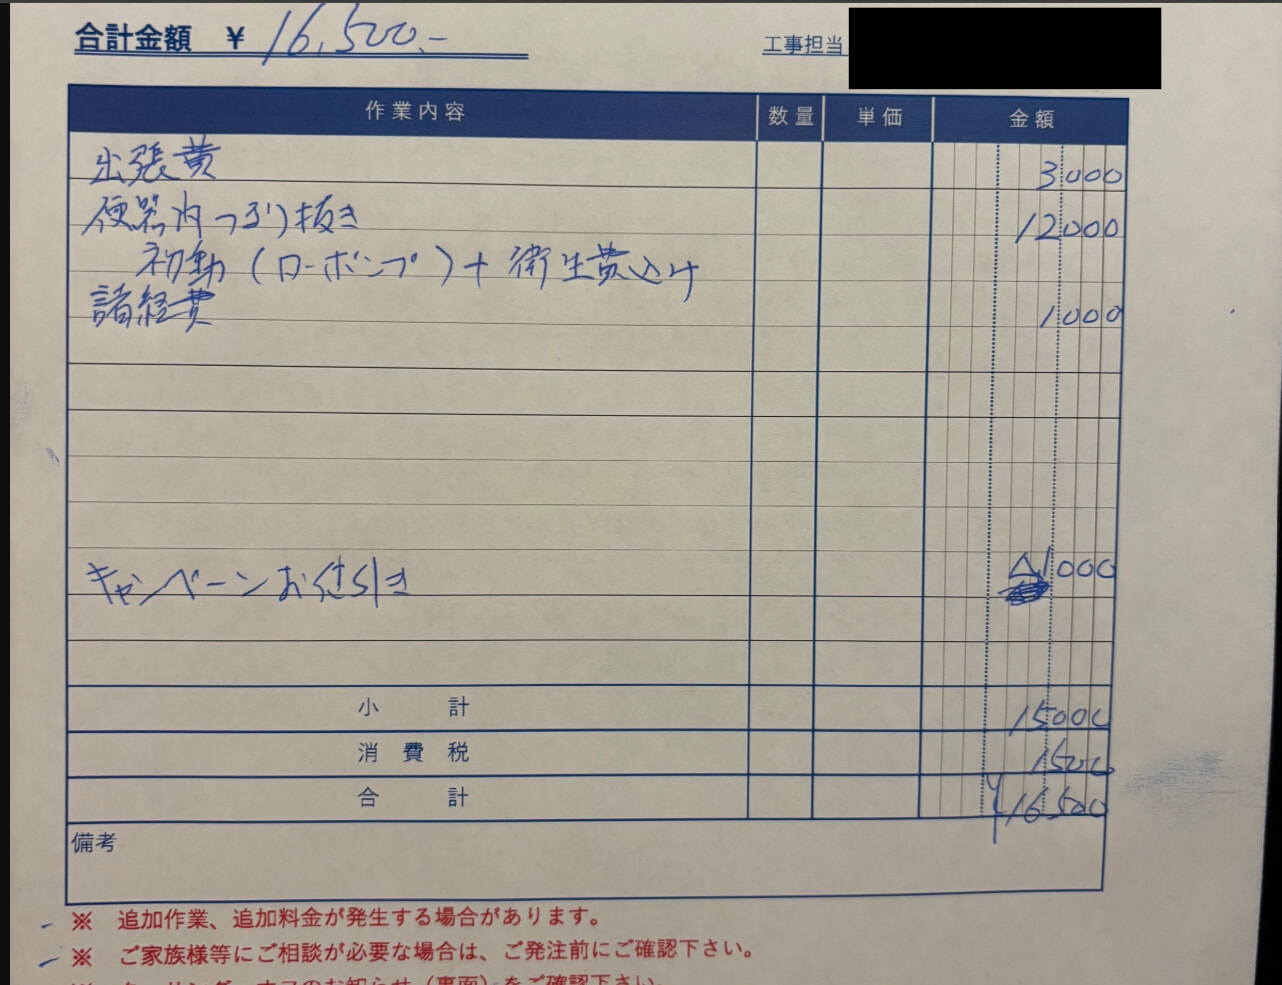 合計金額 ¥16,500.-
工事担当
作業内容 数量 単価 金額
出張費 3000
便器内つまり抜き 12000
初動(ローポンプ)+衛生費込み
諸経費 1000
キャンペーンお値引き △1000
小計 15000
消費税 1500
合計 ¥16500
備考
※ 追加作業、追加料金が発生する場合があります。
※ ご家族様等にご相談が必要な場合は、ご発注前にご確認下さい。
※ クーリング・オフのお知らせ(裏面)をご確認下さい。